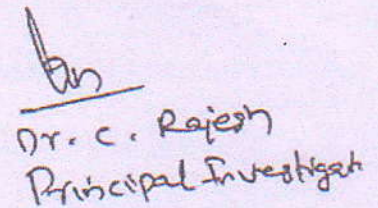 Dr. C. Rajesh
Principal Investigat